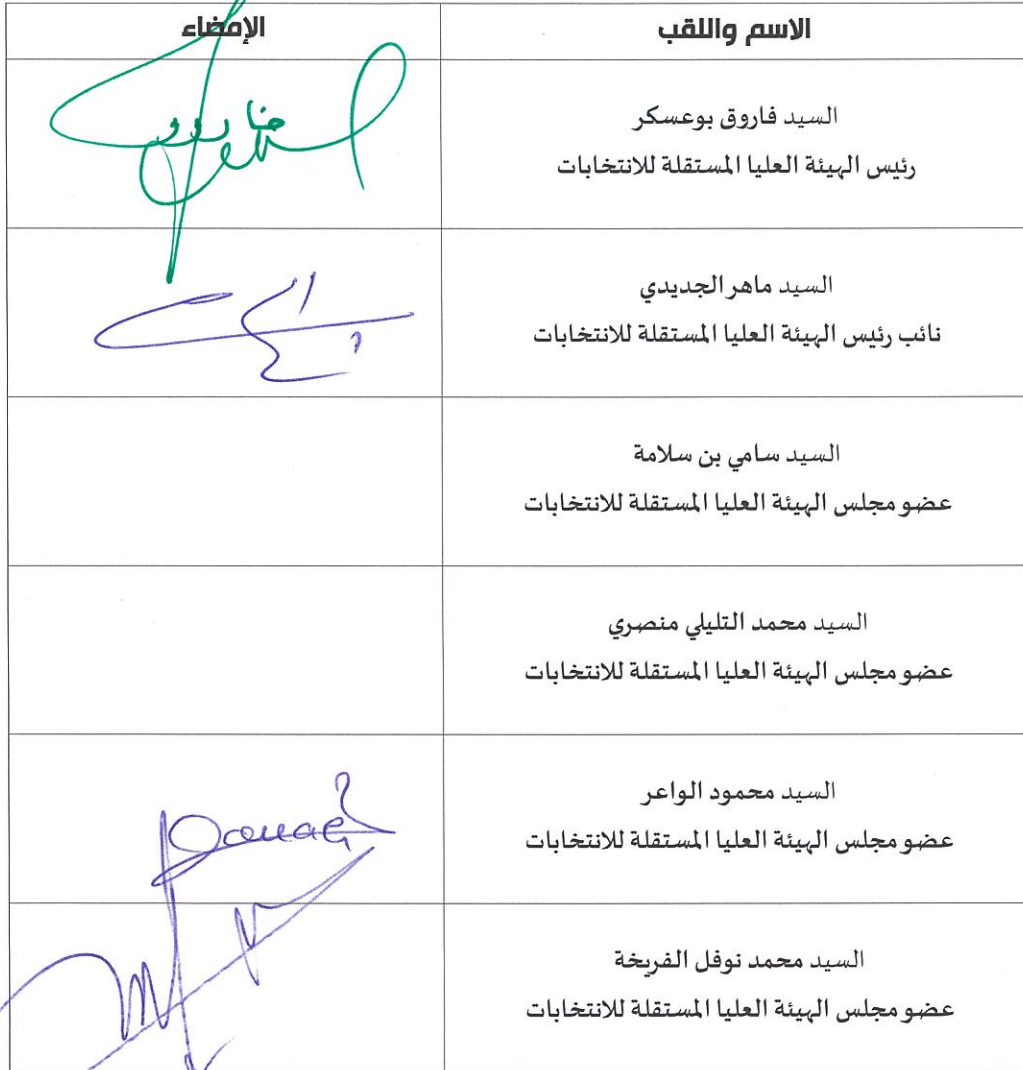 الاسم واللقب
الإمضاء
السيد فاروق بوعسكر
رئيس الهيئة العليا المستقلة للانتخابات
السيد ماهر الجديدي
نائب رئيس الهيئة العليا المستقلة للانتخابات
السيد سامي بن سلامة
عضو مجلس الهيئة العليا المستقلة للانتخابات
السيد محمد التليلي منصري
عضو مجلس الهيئة العليا المستقلة للانتخابات
السيد محمود الواعر
عضو مجلس الهيئة العليا المستقلة للانتخابات
السيد محمد نوفل الفريخة
عضو مجلس الهيئة العليا المستقلة للانتخابات